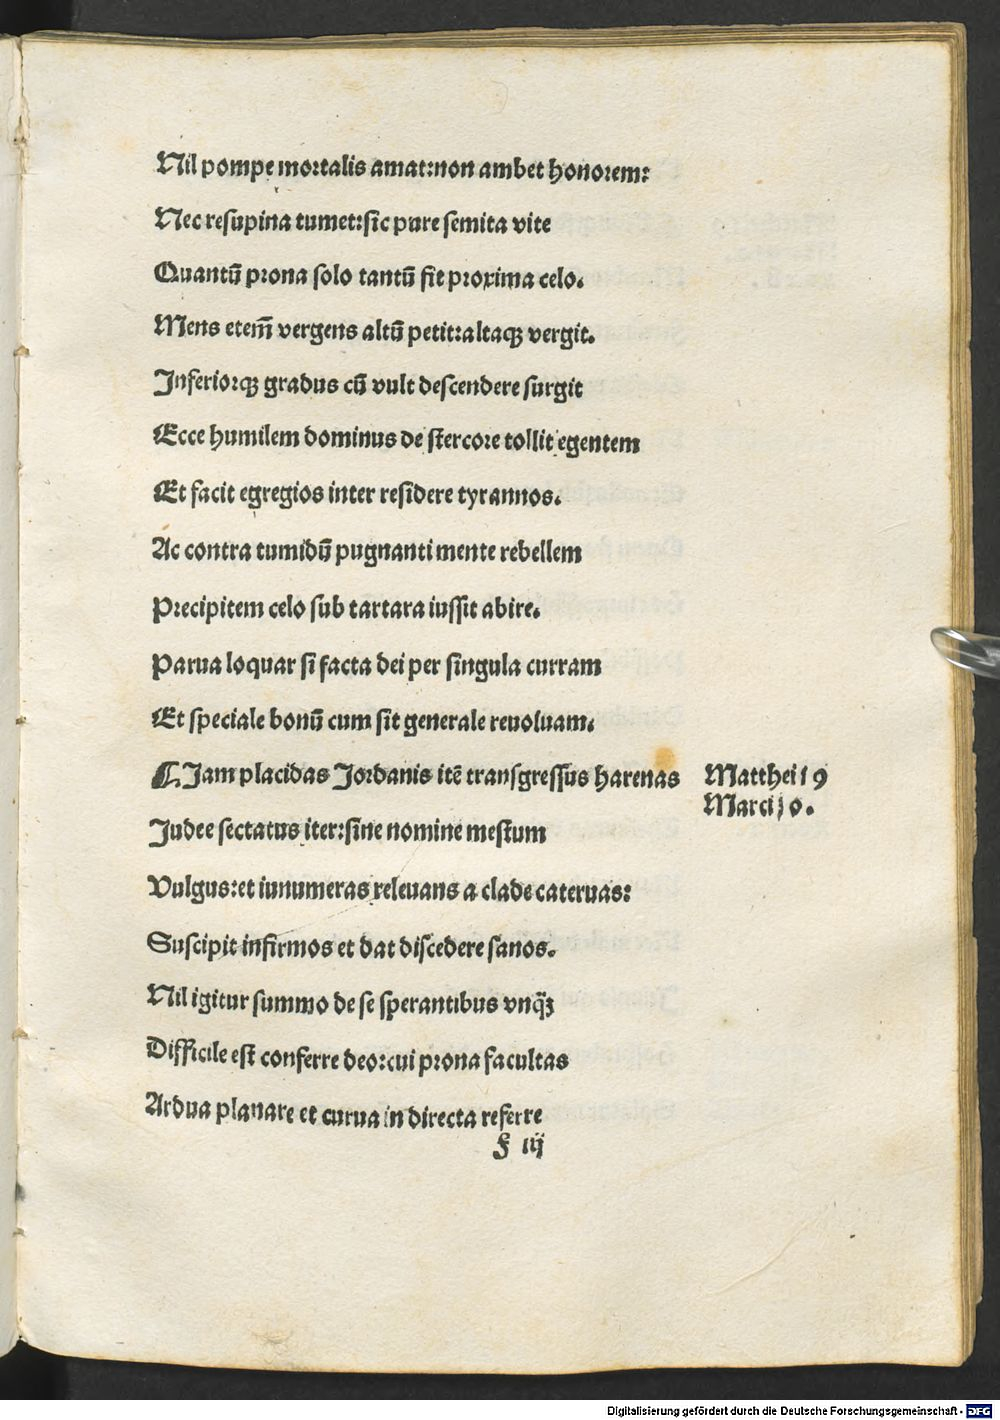 Nil pompe mortalis amat:non ambet honorem:
Nec resupina tumet:sic pure semita vite
Quantū prona solo tantū fit proxima celo.
Mens etem̄ vergens altū petit:altaqꝫ vergit.
Inferiorqꝫ gradus cū vult descendere surgit
Ecce humilem dominus de stercore tollit egentem
Et facit egregios inter residere tyrannos.
Ac contra tumidū pugnanti mente rebellem
Precipitem celo sub tartara iussit abire.
Parua loquar si facta dei per singula curram
Et speciale bonū cum sit generale reuoluam.
¶Iam placidas Jordanis itē transgressus harenas
Matthei 19
Marci 10.
Judee sectatus iter:sine nomine mestum
Vulgus:et iunumeras releuans a clade cateruas:
Suscipit infirmos et dat discedere sanos.
Nil igitur summo de se sperantibus vnq̄ꝫ
Difficile est conferre deo:cui prona facultas
Ardua planare et curua in directa referre
f iij
Digitalisierung gefördert durch die Deutsche Forschungsgemeinschaft - DFG